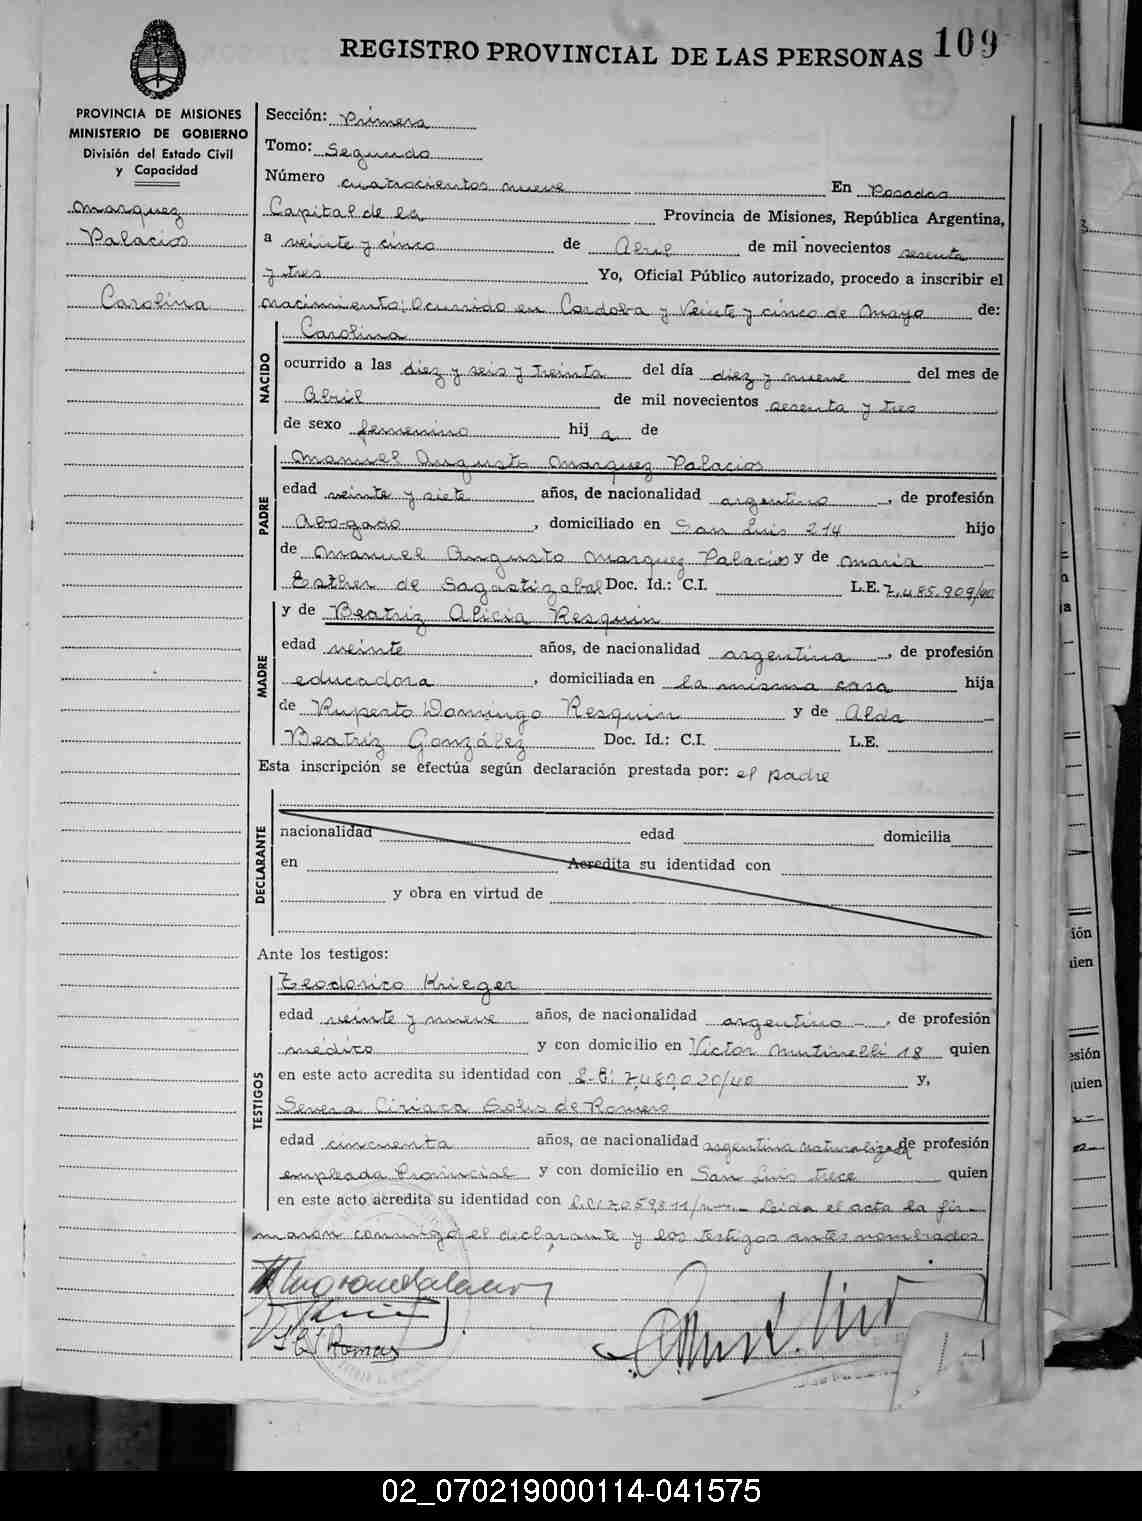 REGISTRO PROVINCIAL DE LAS PERSONAS 109
PROVINCIA DE MISIONES
MINISTERIO DE GOBIERNO
División del Estado Civil
y Capacidad
Marquez
Palacios
Carolina
Sección: Primera
Tomo: Segundo
Número cuatrocientos nueve En Posadas
Capital de la Provincia de Misiones, República Argentina,
a veinte y cinco de Abril de mil novecientos sesenta
y tres Yo, Oficial Público autorizado, procedo a inscribir el
nacimiento: Ocurrido en Cordoba y Veinte y cinco de Mayo de:
NACIDO
Carolina
ocurrido a las diez y seis y treinta del día diez y nueve del mes de
Abril de mil novecientos sesenta y tres
de sexo femenino hij a de
PADRE
Manuel Augusto Marquez Palacios
edad veinte y siete años, de nacionalidad argentino, de profesión
Abogado, domiciliado en San Luis 214 hijo
de Manuel Augusto Marquez Palacios y de María
Esther de Sagastizabal Doc. Id.: C.I. L.E. 7.485.909/40
y de Beatriz Alicia Resquin
MADRE
edad veinte años, de nacionalidad argentina, de profesión
educadora, domiciliada en la misma casa hija
de Ruperto Domingo Resquin y de Alda
Beatriz González Doc. Id.: C.I. L.E.
Esta inscripción se efectúa según declaración prestada por: el padre
DECLARANTE
nacionalidad edad domicilia
en Acredita su identidad con
y obra en virtud de
Ante los testigos:
TESTIGOS
Teodorico Krieger
edad veinte y nueve años, de nacionalidad argentino, de profesión
médico y con domicilio en Victor Mutinelli 18 quien
en este acto acredita su identidad con L.E: 7.480.020/40 y,
Severa Ciriaca Solis de Romero
edad cincuenta años, de nacionalidad argentina naturalizada de profesión
empleada Provincial y con domicilio en San Luis trece quien
en este acto acredita su identidad con Leida el acta la fir-
maron conmigo el declarante y los testigos antes nombrados
02_070219000114-041575